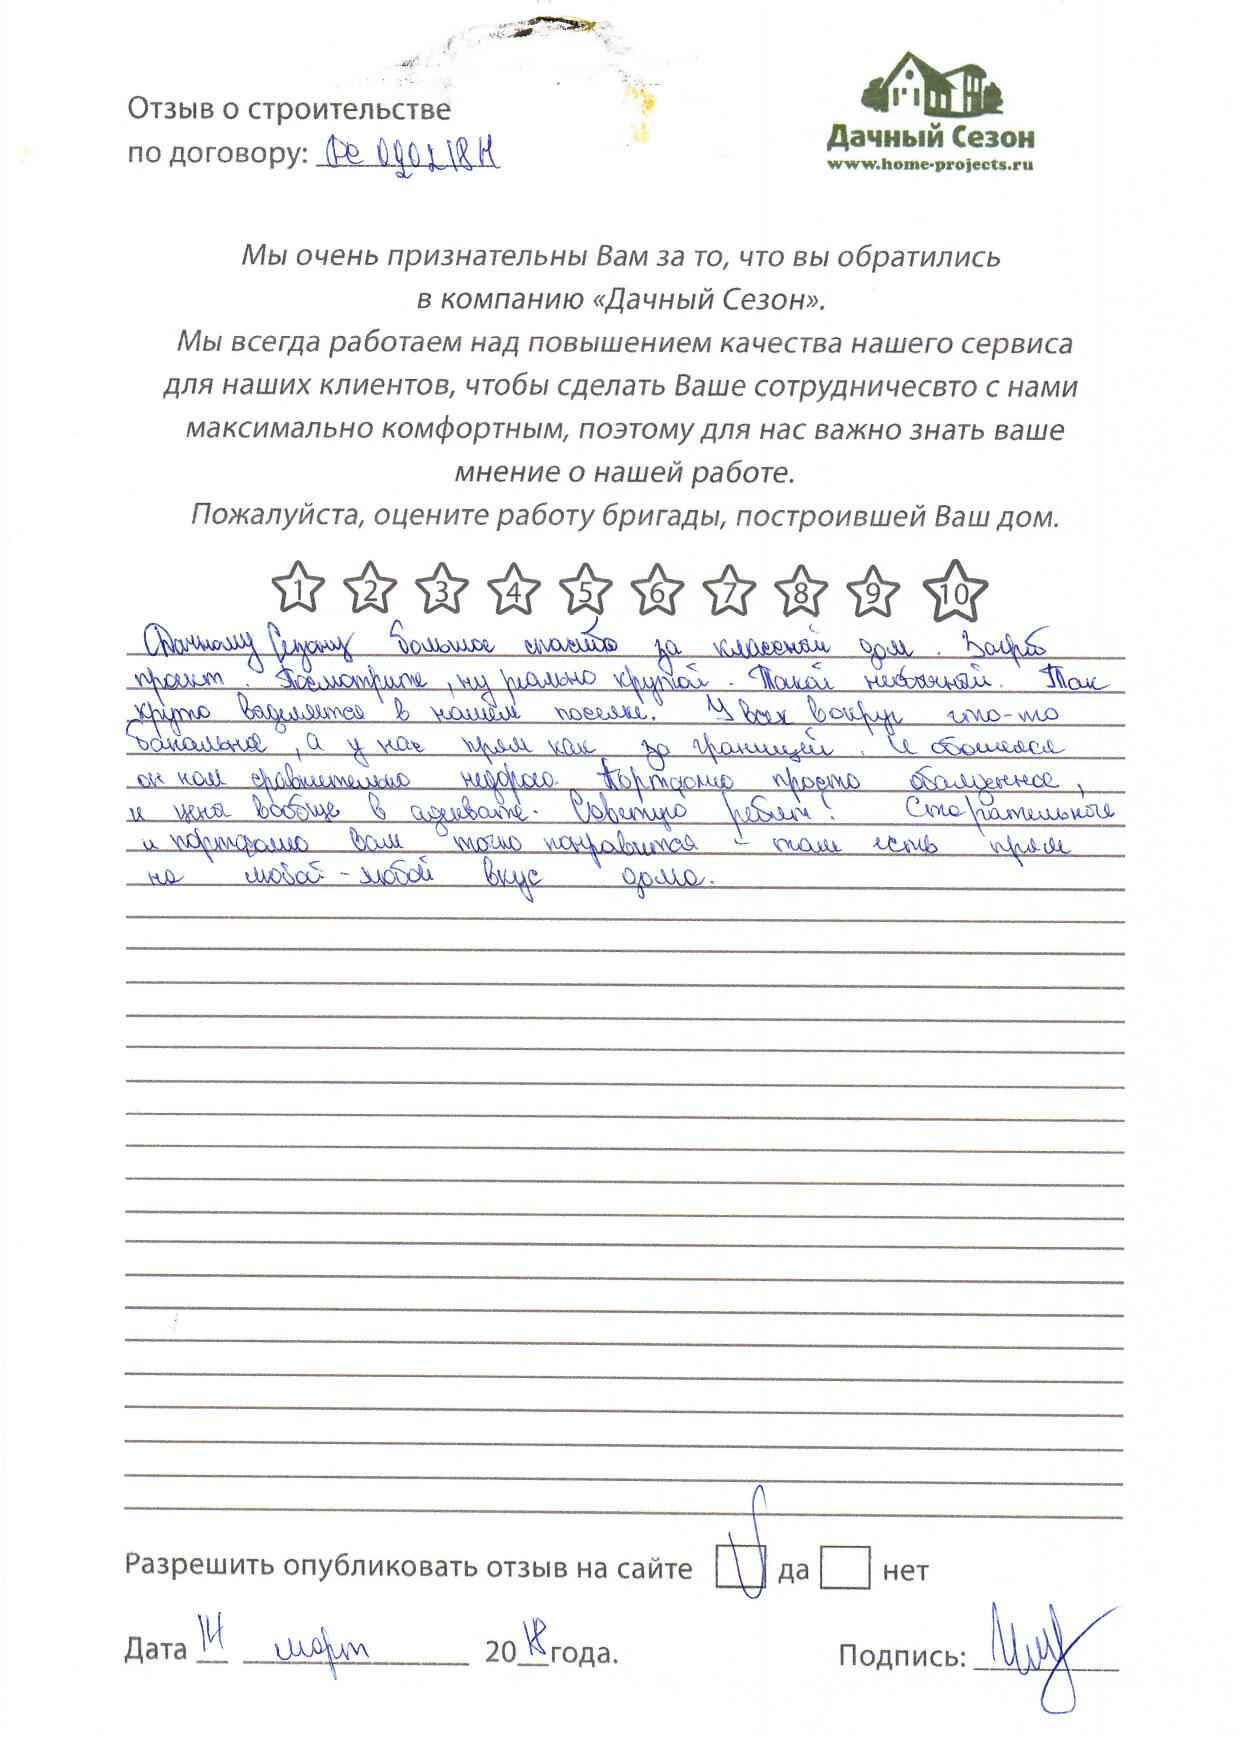 Отзыв о строительстве
по договору: ДС 090218Н
Дачный Сезон
www.home-projects.ru
Мы очень признательны Вам за то, что вы обратились
в компанию «Дачный Сезон».
Мы всегда работаем над повышением качества нашего сервиса
для наших клиентов, чтобы сделать Ваше сотрудничесвто с нами
максимально комфортным, поэтому для нас важно знать ваше
мнение о нашей работе.
Пожалуйста, оцените работу бригады, построившей Ваш дом.
1 2 3 4 5 6 7 8 9 10
Дачному Сезону большое спасибо за классный дом.
проект. Посмотрите, ну реально крутой. Такой необычный. Так
круто выделяется в нашем поселке. У всех вокруг что-то
банальное, а у нас прям как за границей. И обошелся
он нам сравнительно недорого. Портфолио просто обалденное,
и цены вообще в адеквате. Советую ребят! Старательные
и портфолио вам точно понравится – там есть прям
на любой-любой вкус дома.
Разрешить опубликовать отзыв на сайте да нет
Дата 14 март 2018 года. Подпись: